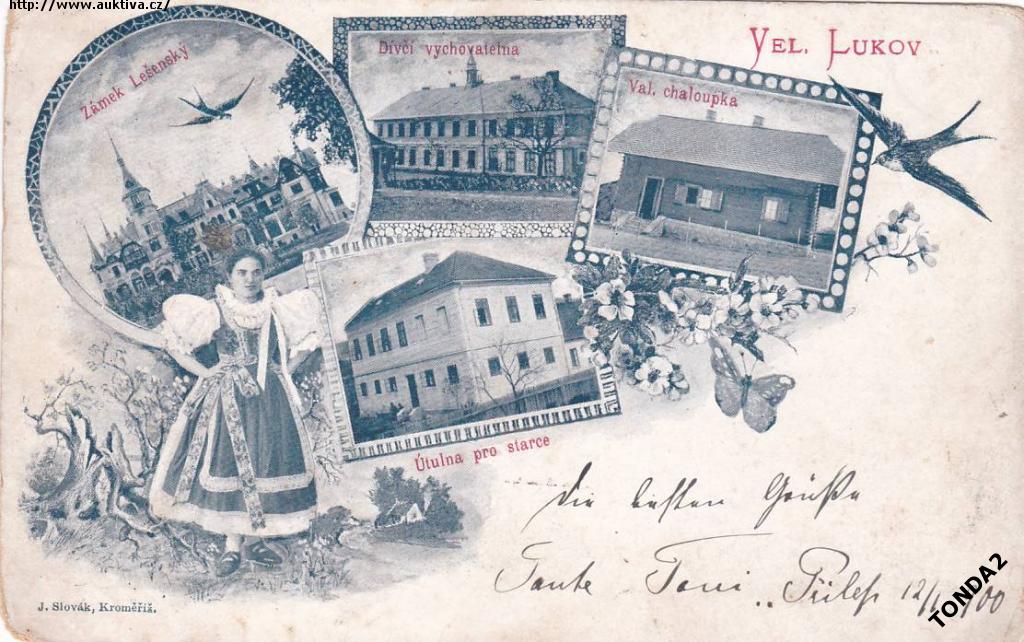 http://www.auktiva.cz/
Vel. Lukov
Zámek Lešenský
Dívčí vychovatelna
Val. chaloupka
Útulna pro starce
die besten Grüße
Tante Toni
Přílep 12/
00
J. Slovák, Kroměříž.
TONDA2